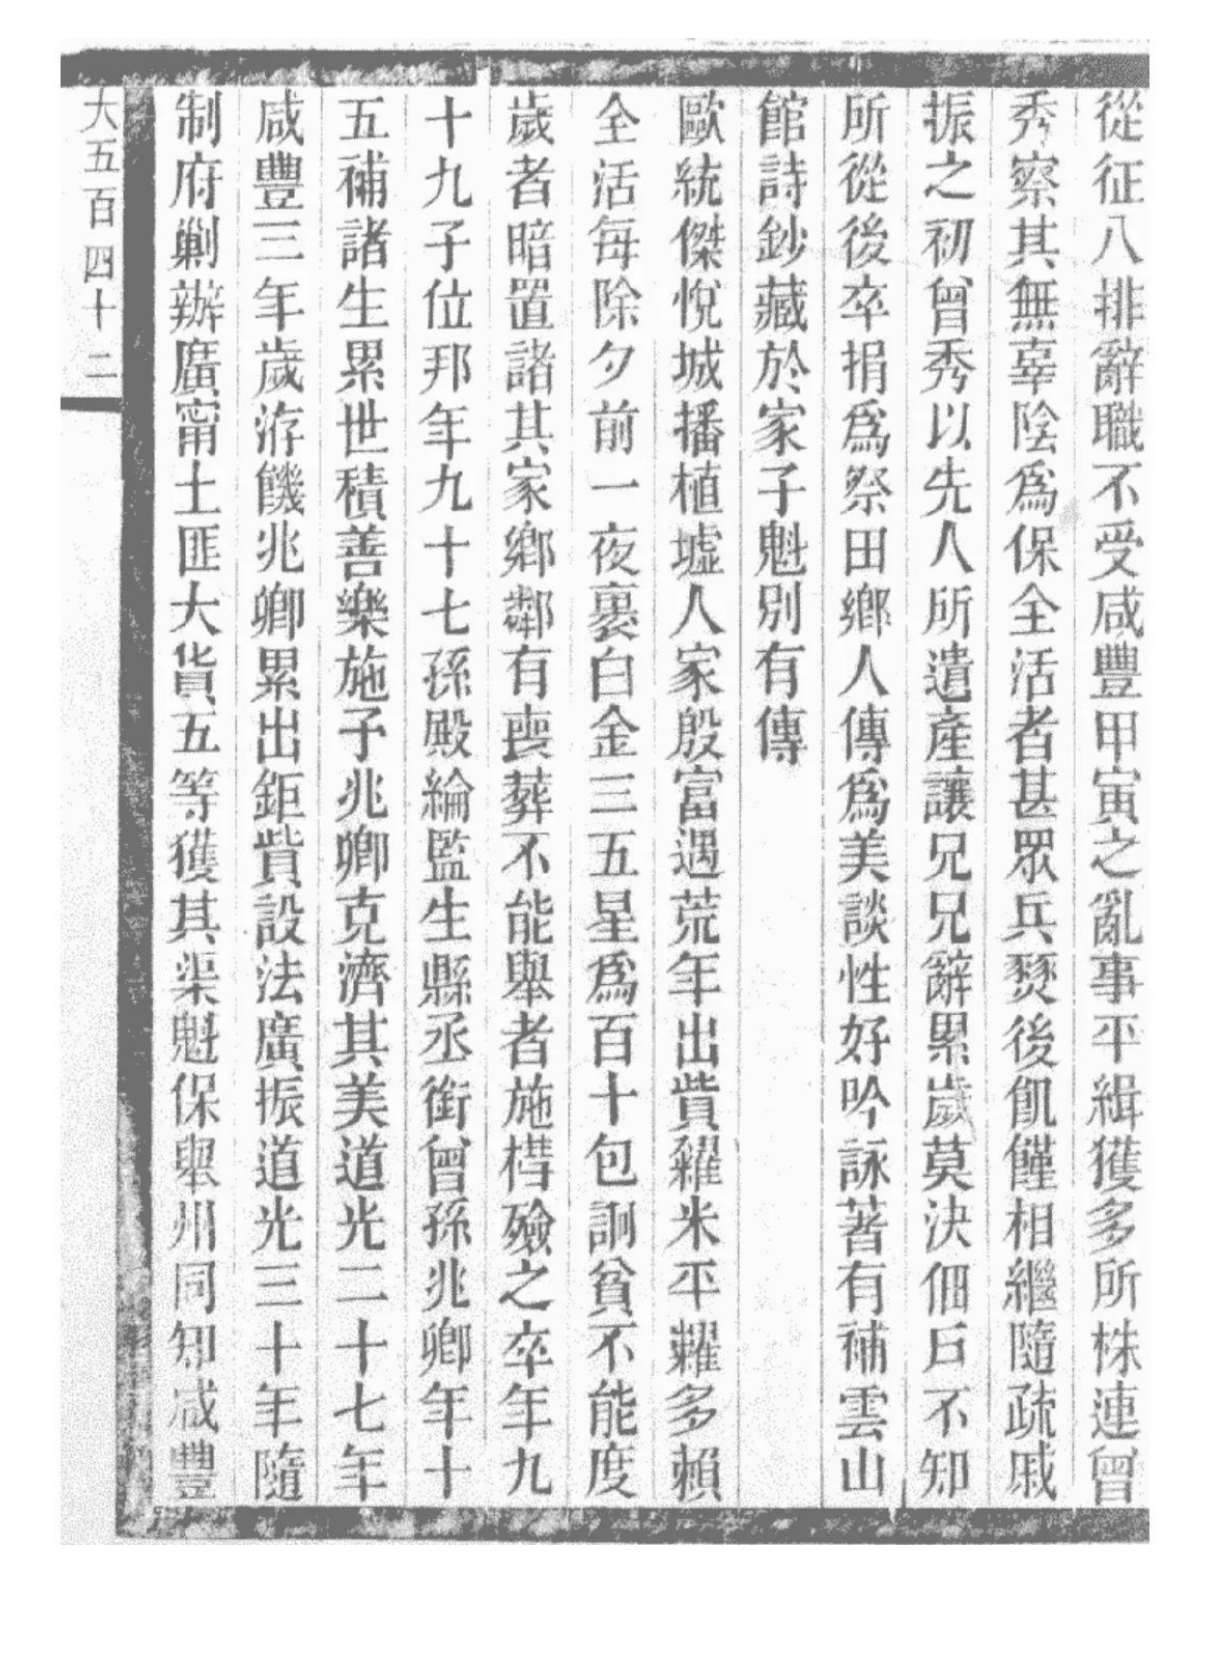 從征八排辭職不受咸豐甲寅之亂事平緝獲多所株連曾
秀察其無辜陰爲保全活者甚眾兵燹後飢饉相繼隨疏戚
振之初曾秀以先人所遺產讓兄兄辭累歲莫決佃戶不知
所從後卒捐爲祭田鄉人傳爲美談性好吟詠著有補雲山
館詩鈔藏於家子魁別有傳
歐統傑悅城播植墟人家殷富遇荒年出貲糴米平糶多賴
全活每除夕前一夜裹白金三五星爲百十包詗貧不能度
歲者暗置諸其家鄉鄰有喪葬不能舉者施槥殮之卒年九
十九子位邦年九十七孫殿綸監生縣丞銜曾孫兆卿年十
五補諸生累世積善樂施予兆卿克濟其美道光二十七年
咸豐三年歲洊饑兆卿累出鉅貲設法廣振道光三十年隨
制府剿辦廣甯土匪大貨五等獲其渠魁保舉州同知咸豐
大五百四十二